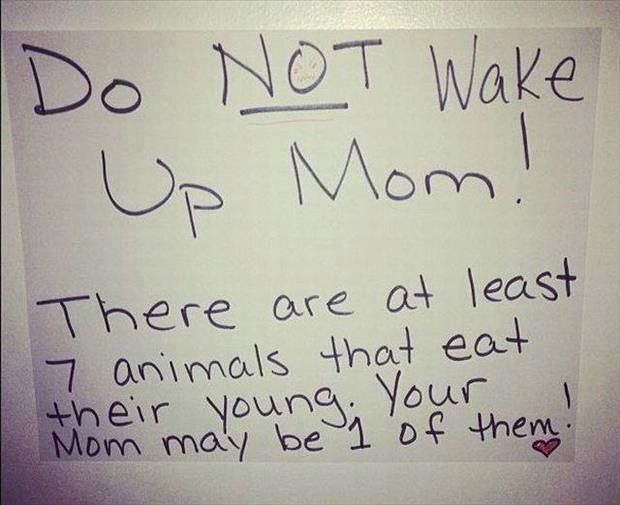 Do NOT Wake
Up Mom!
There are at least
7 animals that eat
their young. Your
Mom may be 1 of them!